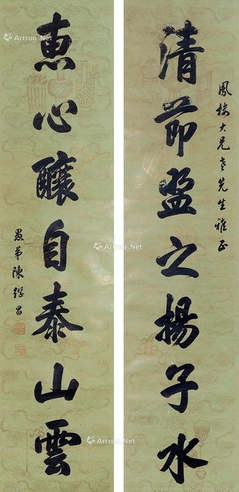 鳳樓大兄老先生雅正
清節盈之揚子水
惠心釀自泰山雲
愚弟陳繼昌
Artron.Net
Artron.Net